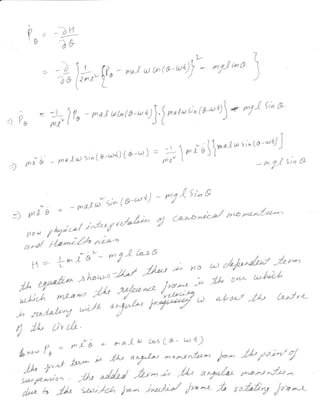 Ṗ_θ = -∂H/∂θ
= -∂/∂θ { 1/2ml² { P_θ - malω cos(θ-ωt) }² - mgl cosθ }
⇒ Ṗ_θ = -1/ml² { P_θ - malω cos(θ-ωt) } · { malω sin(θ-ωt) } - mgl sinθ
⇒ ml²θ̈ - malω sin(θ-ωt)(θ̇-ω) = -1/ml² { ml²θ̇ } { malω sin(θ-ωt) }
- mgl sinθ
⇒ ml²θ̈ = -malω² sin(θ-ωt) - mgl sinθ
now physical interpretation of canonical momentum
and Hamiltonian
H = 1/2 ml²θ̇² - mgl cosθ
the equation shows that there is no ω dependent term
which means the reference frame is the one which
is rotating with angular velocity ω about the centre
of the circle.
now P = ml²θ̇ + malω cos(θ-ωt)
the first term is the angular momentum from the point of
suspension. the added term is the angular momentum
due to the switch from inertial frame to rotating frame